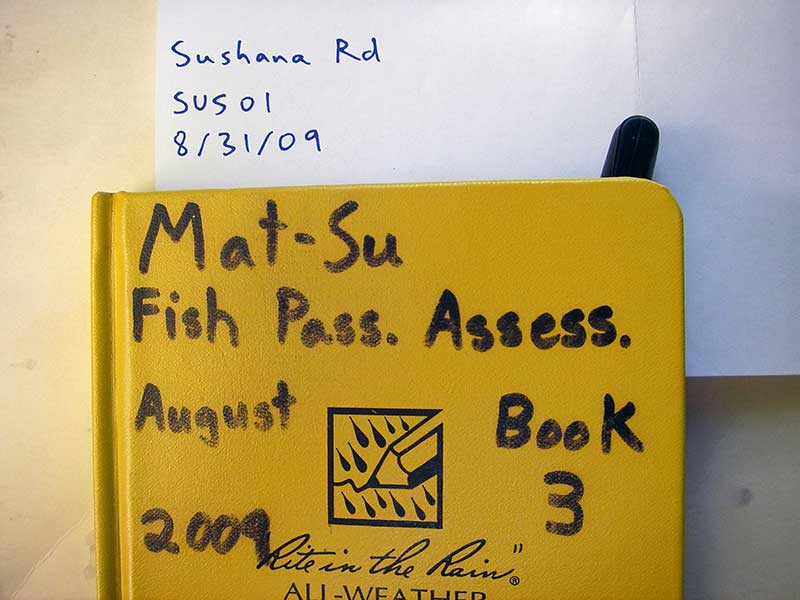 Sushana Rd
SUS01
8/31/09
Mat-Su
Fish Pass. Assess.
August
Book
3
2009
Rite in the Rain"®
ALL-WEATHER